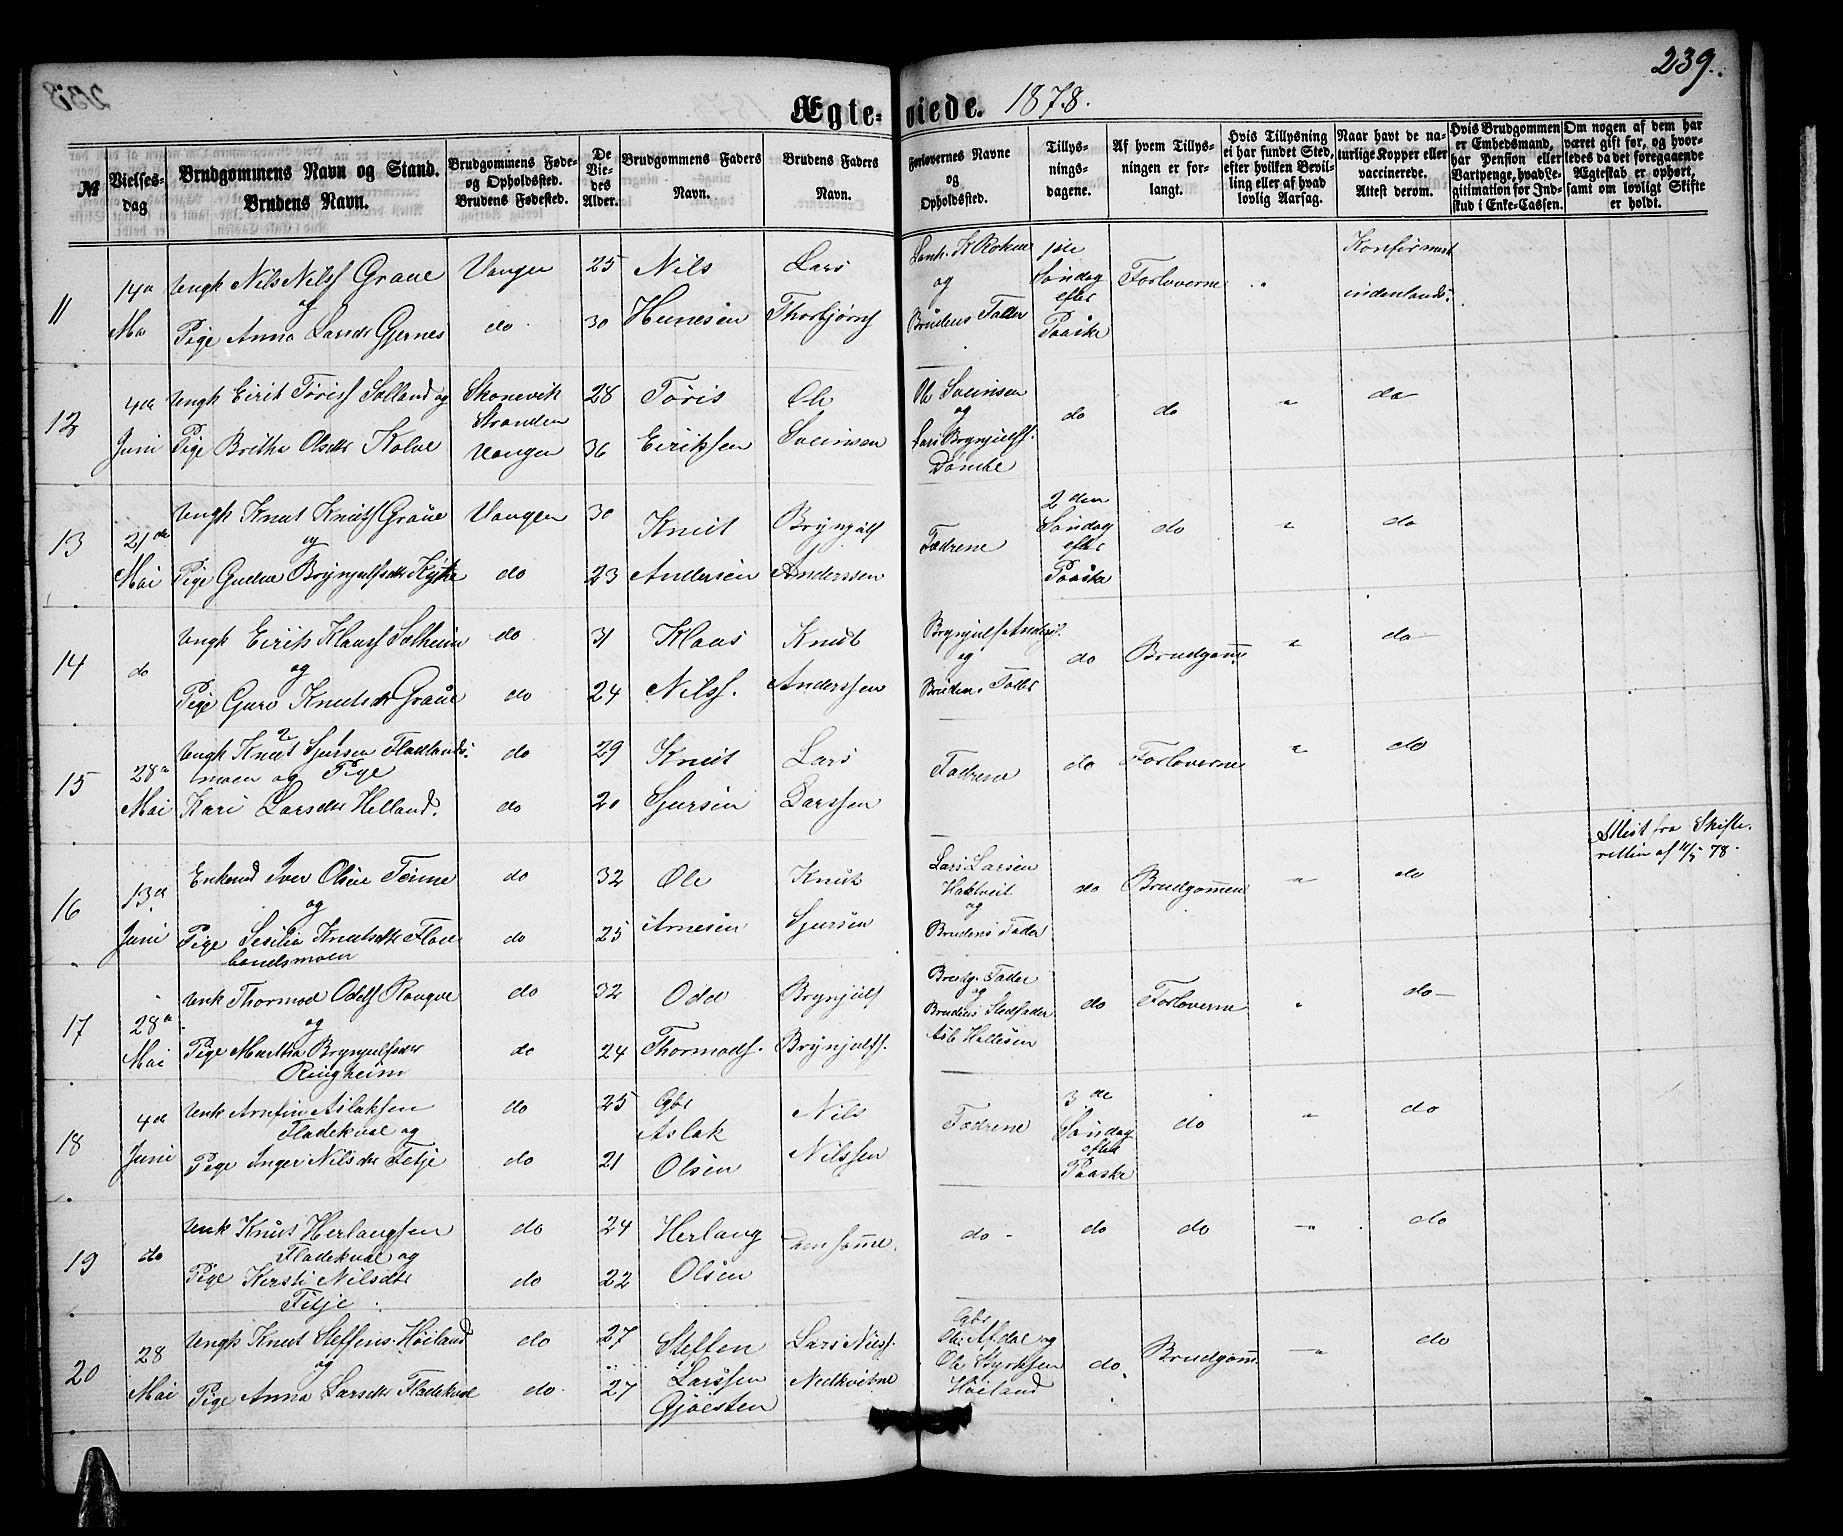 239.
Ægteviede. 1878.
№
Vielses-
dag
Brudgommens Navn og Stand.
Brudens Navn.
Brudgommens Føde-
og Opholdssted.
Brudens Fødested.
De
Vie-
des
Alder.
Brudgommens Faders
Navn.
Brudens Faders
Navn.
Forlovernes Navne
og
Opholdssted.
Tillys-
nings-
dagene.
Af hvem Tillys-
ningen er for-
langt.
Hvis Tillysning
ei har fundet Sted,
efter hvilken Bevil-
ling eller af hvad
lovlig Aarsag.
Naar havt de na-
turlige Kopper eller
vaccinerede.
Attest derom.
Hvis Brudgommen
er Embedsmand,
har Pension eller
Vartpenge, hvad Le-
gitimation for Ind-
skud i Enke-Cassen.
Om nogen af dem har
været gift før, og hvor-
ledes da det foregaaende
Ægteskab er ophørt,
samt om lovligt Skifte
er holdt.
11
14a
Ungk Nils Nilsf Graue
og
Pige Anna Larsdr Gjernes
Vangen
do
25
30
Nils
Lars
Thorbjørns
og
Brudens Fader
1ste
Søndag
efter
Paaske
Forloverne
"
Konfirmert
indenlands.
12
4de
Juni
Ungk Eirik Tørisf Solland og
Pige Britha Olsdtr Kolve
Skonevik
Stranden
Vangen
28
36
Tøris
Eiriksen
Ole
Sveinsen
Ole Sveinsen
og
Lars Brynjulfs.
do
do
"
do
13
21de
Mai
Ungk Knut Knutsf Graue
og
Pige Gudve Brynjulfsdr Kyte
Vangen
do
30
23
Knut
Andersen
Brynjulf
Anderssen
Fædrene
2den
Søndag
efter
Paaske
do
"
do
14
do
Ungk Eirik Klausf Sælheim
og
Pige Guro Knutsdr Graue
do
do
31
24
Klaas
Nilss.
Knut
Anderssen
Brynjulf Anders.
og
Brudens Fader
do
Brudgom̅.
"
do
15
28a
Mai
Ungk Knut Sjursen Fladlands-
moen og Pige
Kari Larsdtr Helland.
do
do
29
20
Knut
Sjursen
Lars
Larssen
Fædrene
do
Forloverne
"
do
16
13a
Juni
Enkmd Iver Olsen Tønne
og
Pige Sesilia Knutsdtr Flad-
landsmoen
do
do
32
25
Ole
Arnesen
Knut
Sjursen
Lars Larsen
og
Brudens Fader
do
Brudgom̅en
"
do
Attest fra Skifte-
retten af 11/5 78.
17
28a
Mai
Unk Thormod Oddsf Rongve
og
Pige Martha Brynjulfsdr
Ringheim
do
do
32
24
Odd
Thormods.
Brynjulf
Brynjulfs.
Brudg. Fader
og
Brudens Stedfader
do
Forloverne
"
do
18
4de
Juni
Unk Arnfin Aslaksen
Fladekval og
Pige Inger Nilsdr Fetje
do
do
25
21
Gbr
Aslak
Olsen
Nils
Nilssen
Fædrene
3de
Søndag
efter
Paaske
do
"
do
19
do
Unk Knut Herlaugsen
Fladekval og
Pige Kersti Nilsdtr
Fitje
do
do
24
22
Herlaug
Olsen
Den sam̅e.
do
do
do
"
do
20
28
Mai
Ungk Knut Steffens. Høiland
og
Pige Anna Larsdr Fladekval
do
do
27
27
Steffen
Larssen
Gjøesten
Lars Nilss.
Nedkvitne
Gbr
Ol. Afdal og
Ole Styrksen
Høiland
do
Brudgom̅.
"
do